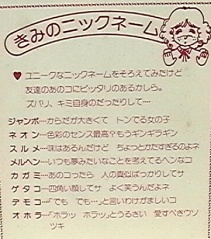 きみのニックネーム
♥ ユニークなニックネームをそろえてみたけど
友達のあのコにピッタリのあるかしら。
ズバリ、キミ自身のだったりして…
ジャンボ…からだが大きくて トンでる女の子
ネオン…色彩のセンス最高?もうギンギラギン
スルメ…味はあるんだけど ちょっとかたすぎるのよネ
メルヘン…いつも夢みたいなことを考えてるヘンなコ
カガミ…あのコったら 人の真似ばかりしてサ
ゲタコ…四角い顔してサ よく笑うんだよネ
デモコ…「でも でも…」と言いわけがましいコ
オホラ…「ホラッ ホラッ」とうるさい 愛すべきウソ
ツキ